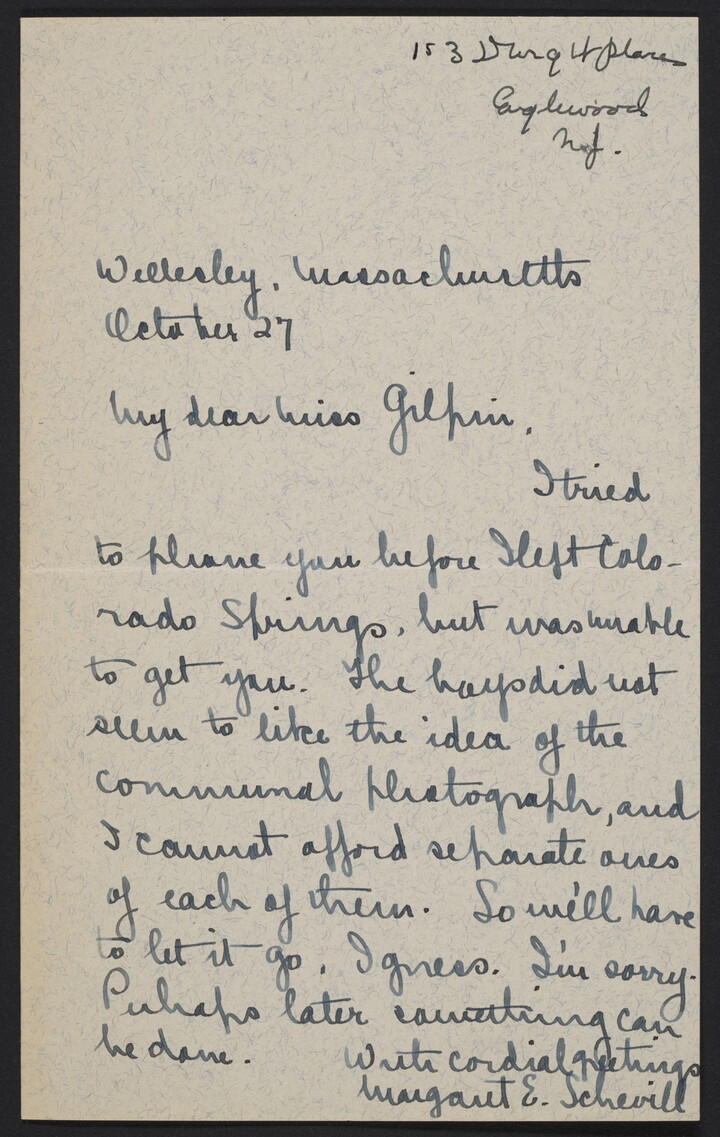 153 Dwight Place
Englewood
N.J.
Wellesley, Massachusetts
October 27
My dear Miss Gilpin,
I tried
to phone you before I left Colo-
rado Springs, but was unable
to get you. The boys did not
seem to like the idea of the
communal photograph, and
I cannot afford separate ones
of each of them. So we'll have
to let it go, I guess. I'm sorry.
Perhaps later something can
be done. With cordial greetings
Margaret E. Schevill